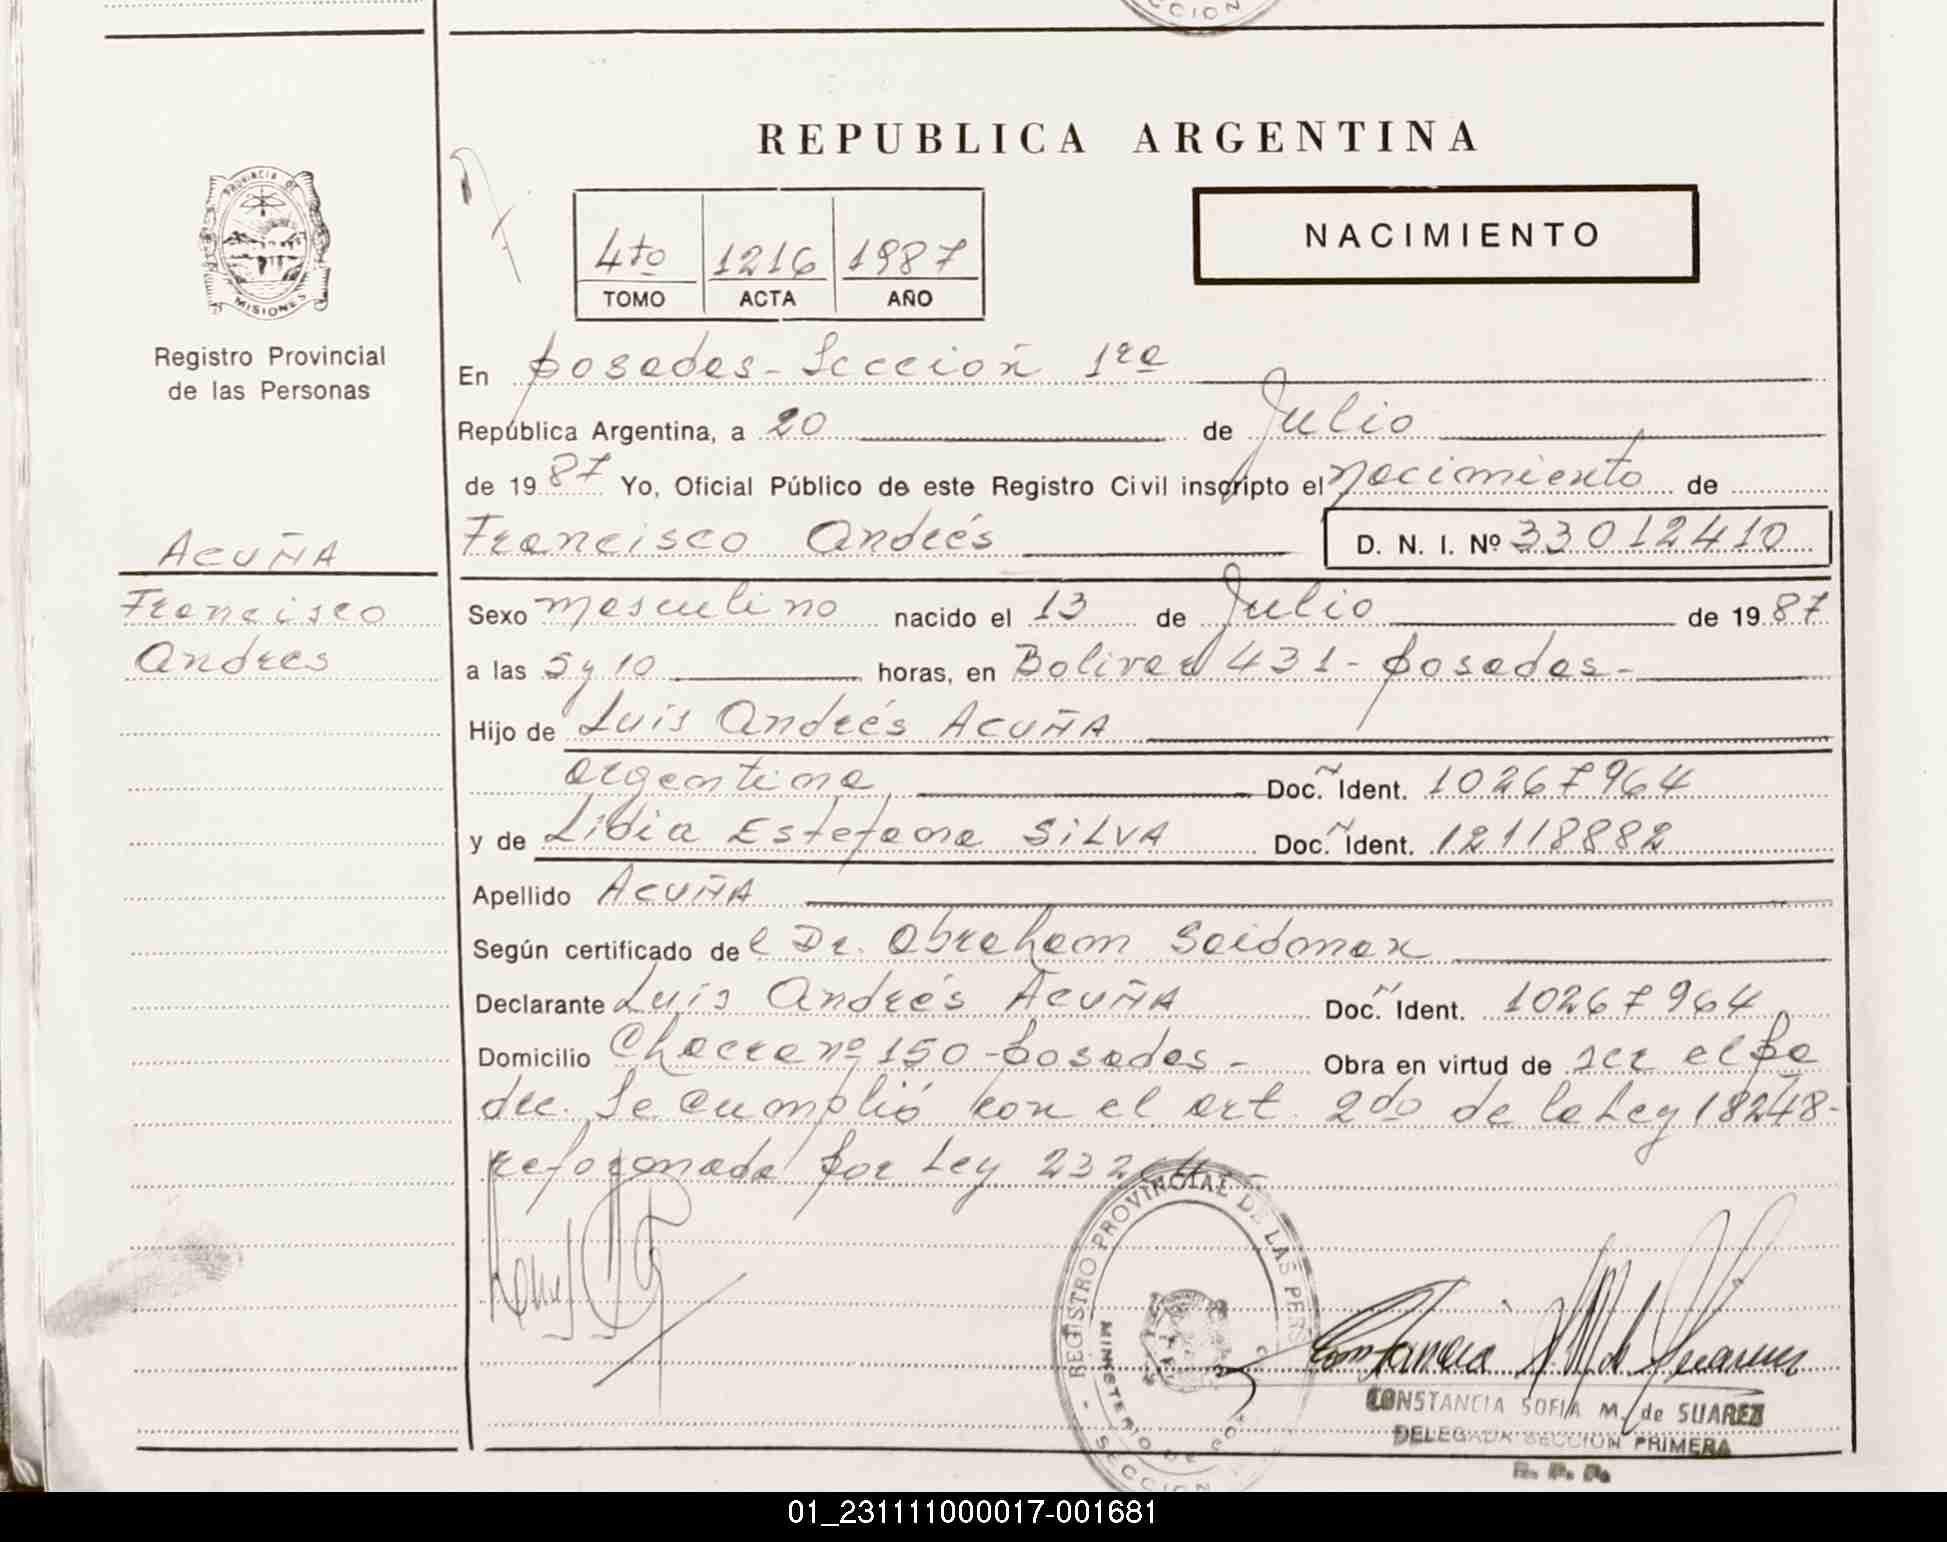 CCION
REPUBLICA ARGENTINA
PROVINCIA DE
MISIONES
Registro Provincial
de las Personas
4to 1216 1987
TOMO ACTA AÑO
NACIMIENTO
En posadas - Sección 1ra
República Argentina, a 20 de Julio
de 1987 Yo, Oficial Público de este Registro Civil inscripto el nacimiento de
Francisco Andrés D. N. I. Nº 33012410
ACUÑA
Francisco
Andres
Sexo masculino nacido el 13 de Julio de 1987
a las 5 y 10 horas, en Bolivar 431 - posadas -
Hijo de Luis Andrés ACUÑA
argentina Doc. Ident. 10267964
y de Lidia Estefana SILVA Doc. Ident. 12118882
Apellido ACUÑA
Según certificado del Dr. Abraham Saidman
Declarante Luis Andrés ACUÑA Doc. Ident. 10267964
Domicilio Chacra nº 150 - posadas - Obra en virtud de ser el pa
dre. Se cumplió con el art. 2do de la Ley 18248-
reformada por Ley
REGISTRO PROVINCIAL DE LAS PERS
MINISTERIO DE GO
SECCION
Constancia S M de Suarez
CONSTANCIA SOFIA M. de SUAREZ
DELEGADA SECCION PRIMERA
R. P. P.
01_231111000017-001681